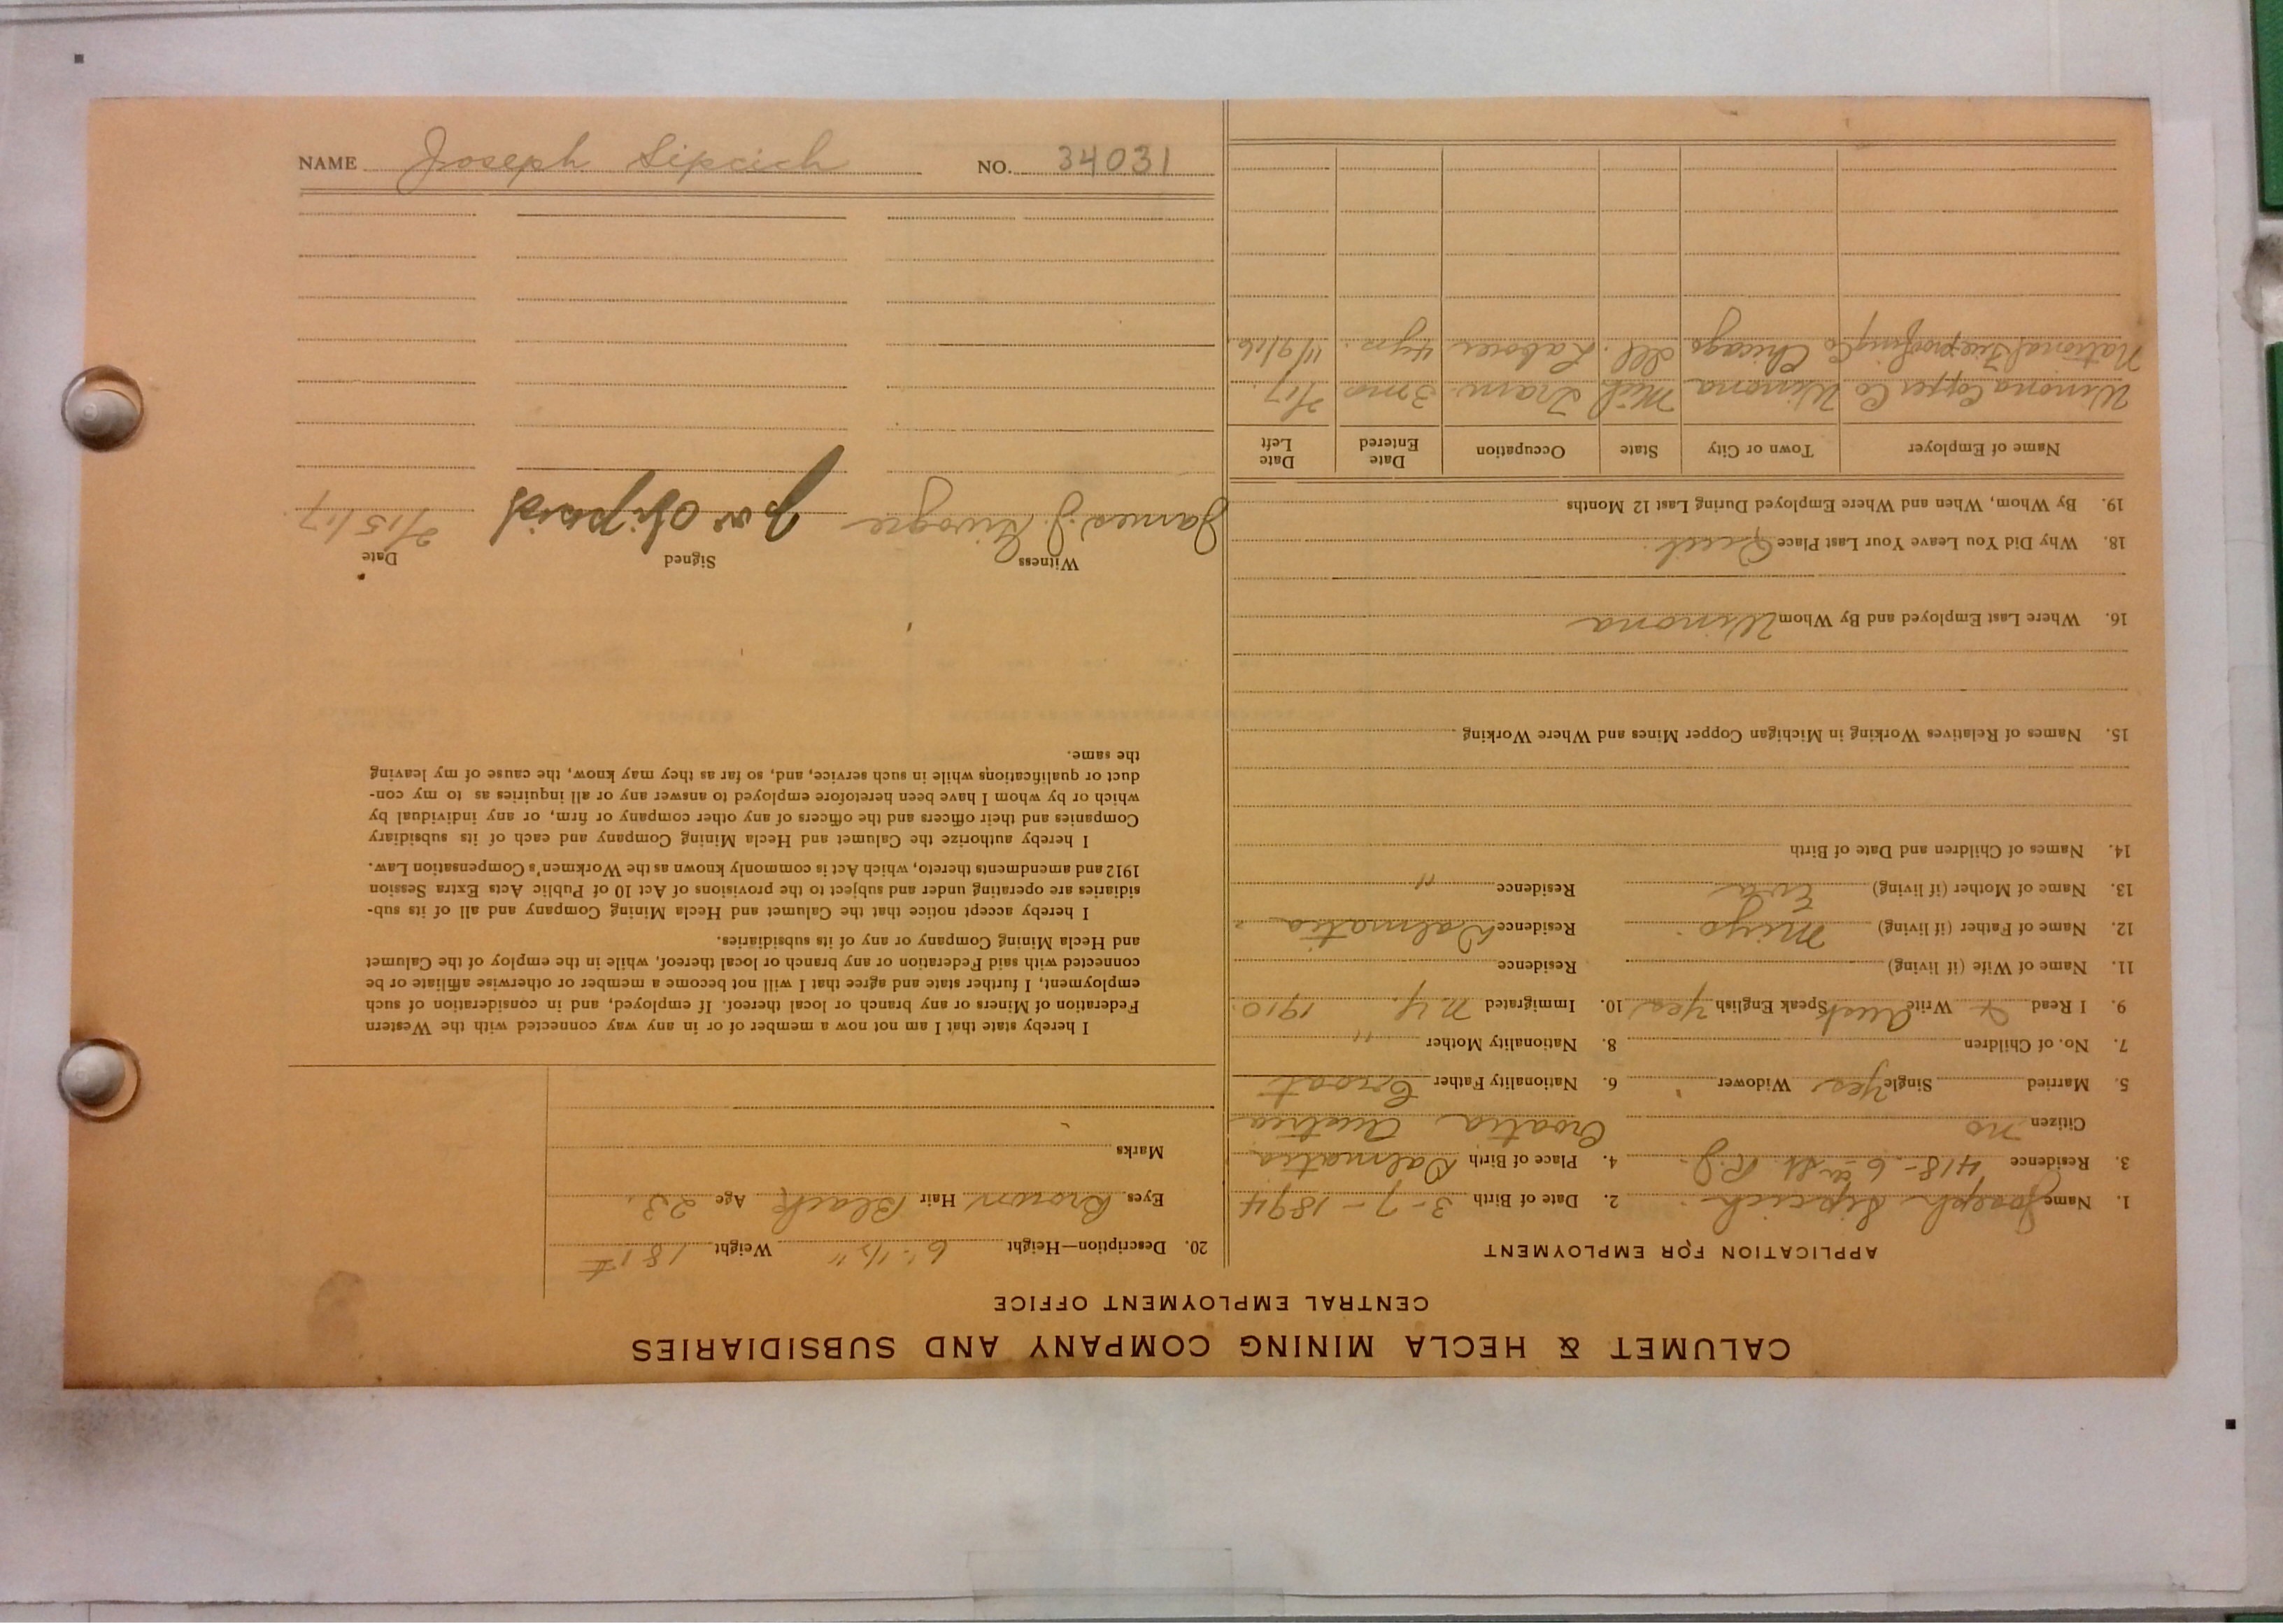 NAME Joseph Sipcich NO. 34031
CALUMET & HECLA MINING COMPANY AND SUBSIDIARIES
CENTRAL EMPLOYMENT OFFICE
APPLICATION FOR EMPLOYMENT
1. Name Joseph Sipcich 2. Date of Birth 3-7-1894
3. Residence 418-6 St. R.J. 4. Place of Birth Dalmatia
Citizen no Croatia Austria
5. Married Single Yes Widower 6. Nationality Father Croat
7. No. of Children 8. Nationality Mother "
9. I Read & Write Aust Speak English Yes 10. Immigrated N.Y. 1910.
11. Name of Wife (if living) Residence
12. Name of Father (if living) Miyo Residence Dalmatia
13. Name of Mother (if living) Eva Residence "
14. Names of Children and Date of Birth
15. Names of Relatives Working in Michigan Copper Mines and Where Working
16. Where Last Employed and By Whom Winona
18. Why Did You Leave Your Last Place Quit.
19. By Whom, When and Where Employed During Last 12 Months
Name of Employer Town or City State Occupation Date Entered Date Left
Winona Copper Co Winona Mich Tram 3 mo 2/17.
National Fireproofing Co Chicago Ill. Laborer 4 yrs. 11/9/16.
20. Description—Height 6'-1/2" Weight 181#
Eyes Brown Hair Black Age 23.
Marks
I hereby state that I am not now a member of or in any way connected with the Western
Federation of Miners or any branch or local thereof. If employed, and in consideration of such
employment, I further state and agree that I will not become a member or otherwise affiliate or be
connected with said Federation or any branch or local thereof, while in the employ of the Calumet
and Hecla Mining Company or any of its subsidiaries.
I hereby accept notice that the Calumet and Hecla Mining Company and all of its sub-
sidiaries are operating under and subject to the provisions of Act 10 of Public Acts Extra Session
1912 and amendments thereto, which Act is commonly known as the Workmen's Compensation Law.
I hereby authorize the Calumet and Hecla Mining Company and each of its subsidiary
Companies and their officers and the officers of any other company or firm, or any individual by
which or by whom I have been heretofore employed to answer any or all inquiries as to my con-
duct or qualifications while in such service, and, so far as they may know, the cause of my leaving
the same.
Witness Signed Date
James J. 2/15/17.